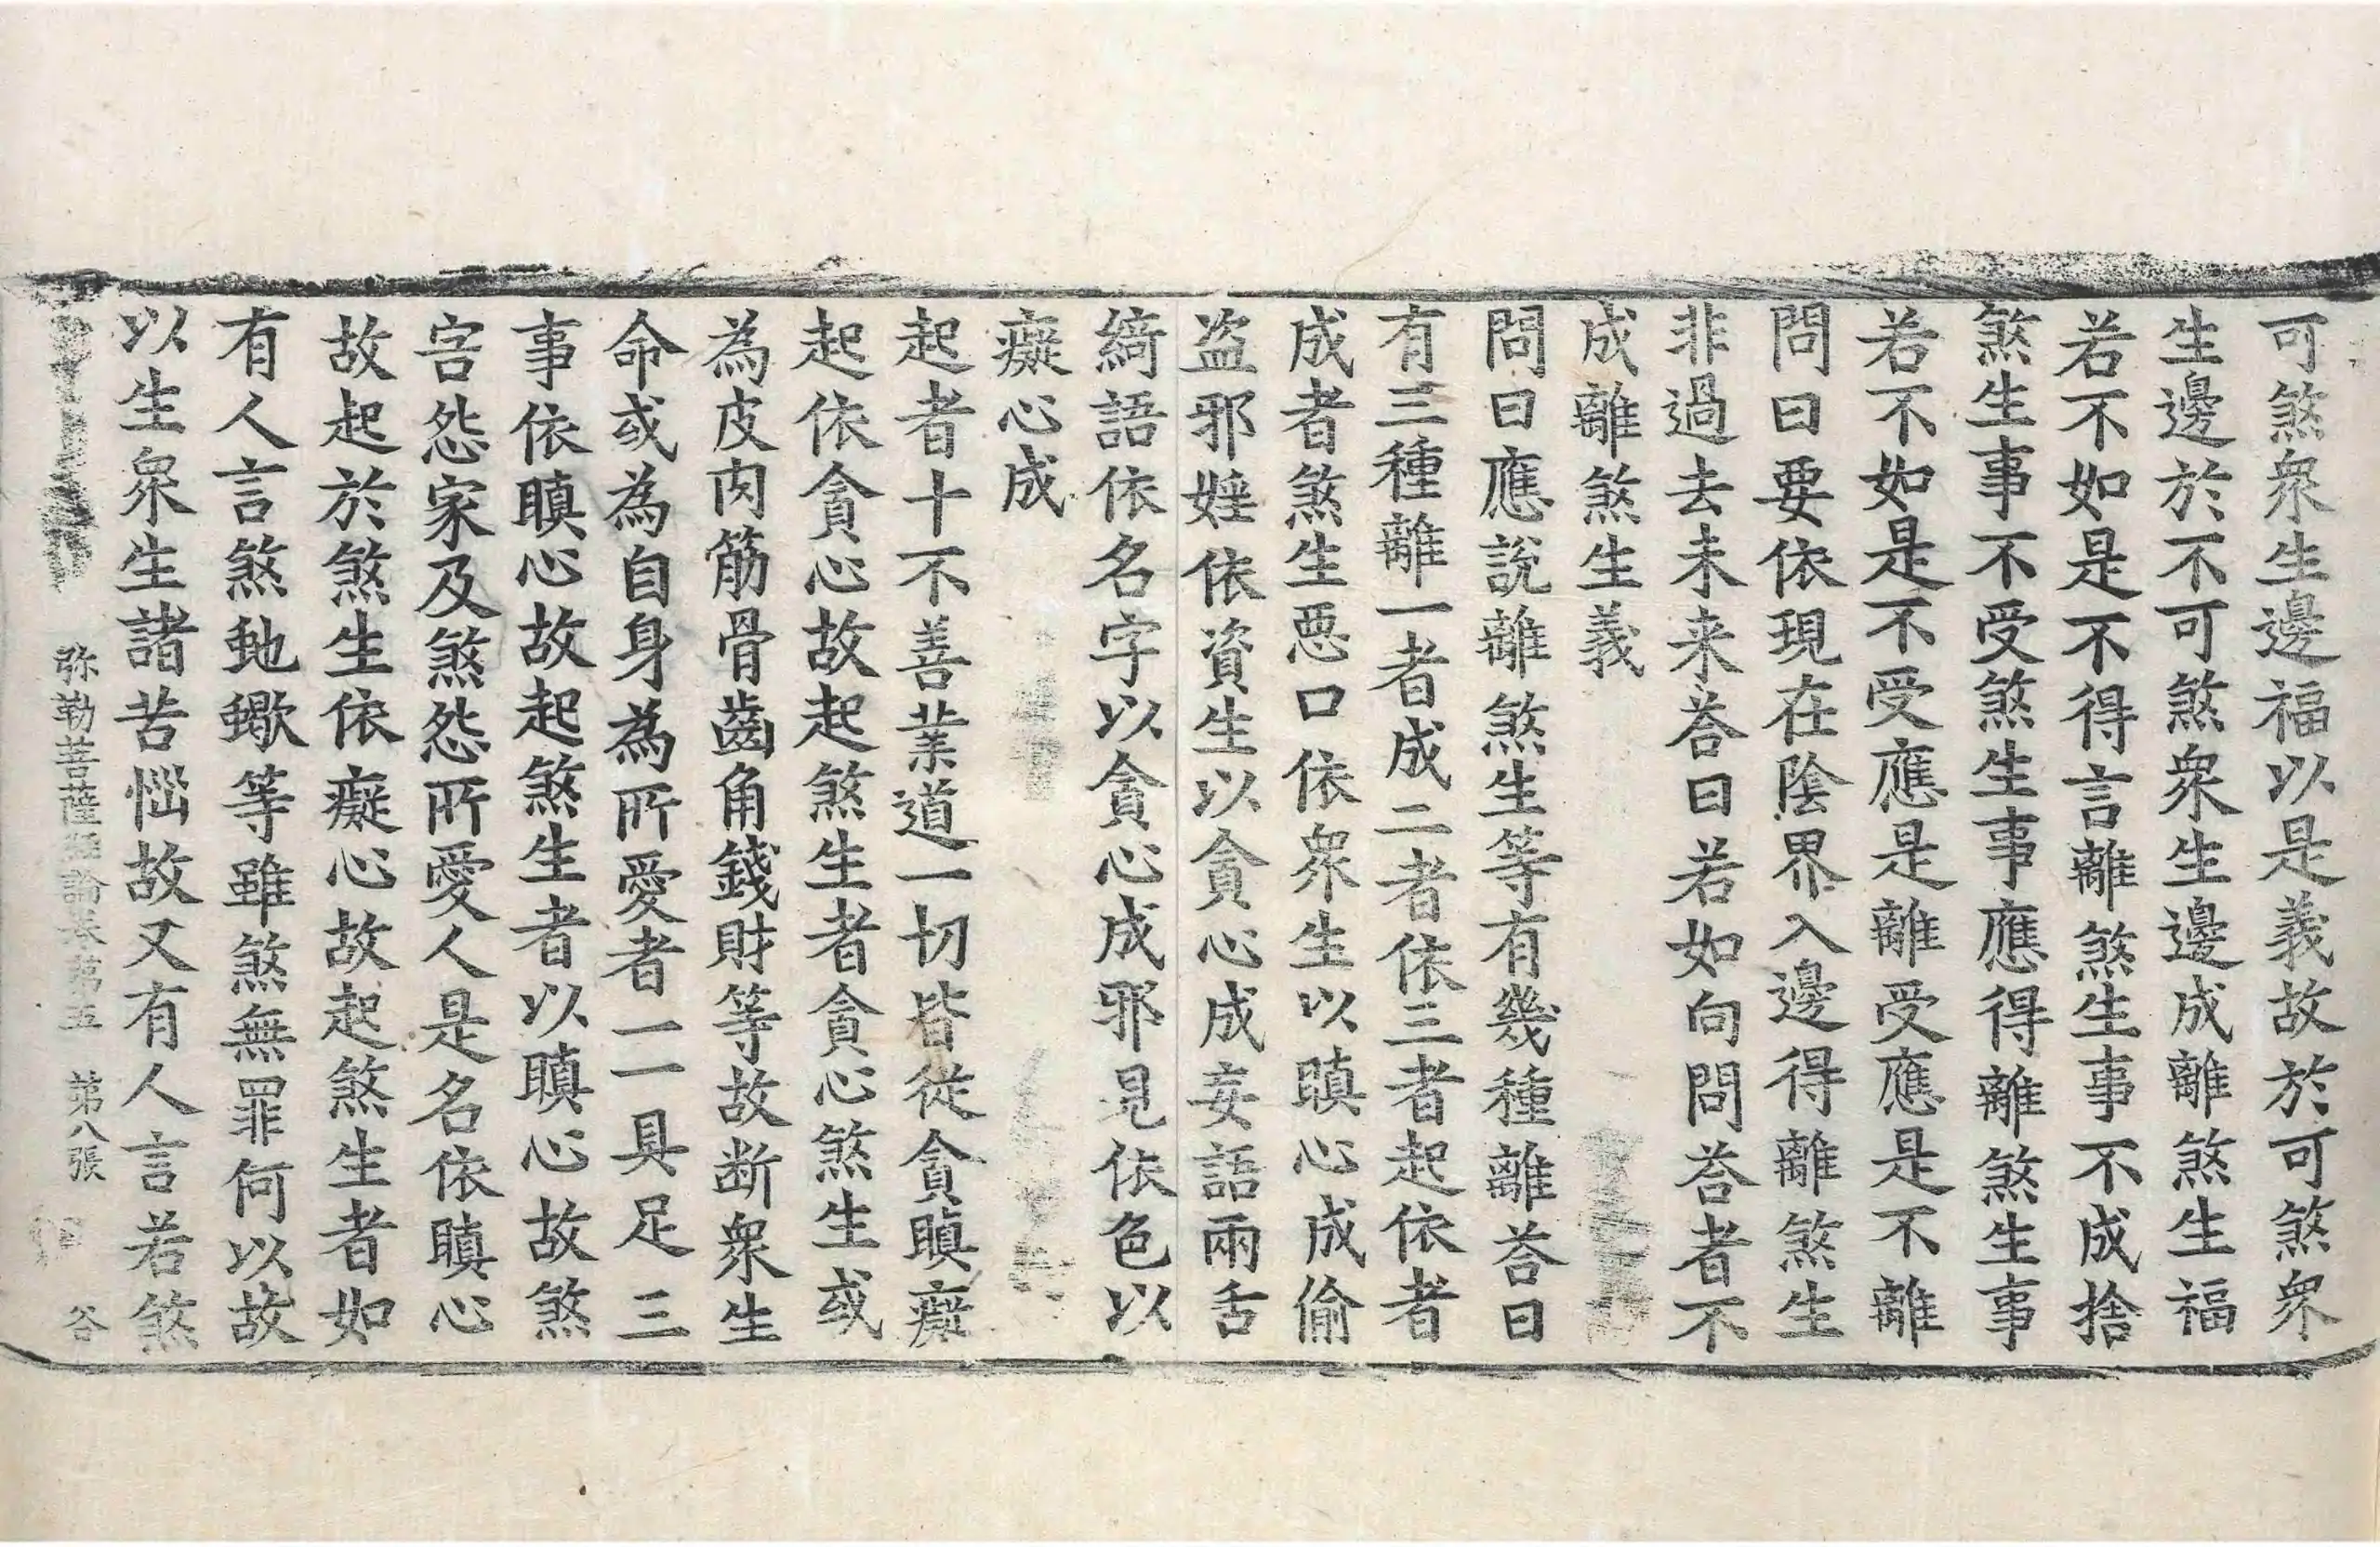 可煞衆生邊福以是義故於可煞衆
生邊於不可煞衆生邊成離煞生福
若不如是不得言離煞生事不成捨
煞生事不受煞生事應得離煞生事
若不如是不受應是離受應是不離
問曰要依現在陰界入邊得離煞生
非過去未来荅曰若如向問荅者不
成離煞生義
問曰應說離煞生等有幾種離荅曰
有三種離一者成二者依三者起依者
成者煞生惡口依衆生以瞋心成偷
盗邪婬依資生以貪心成妄語兩舌
綺語依名字以貪心成邪見依色以
癡心成
起者十不善業道一切皆從貪瞋癡
起依貪心故起煞生者貪心煞生或
為皮肉筋骨齒角錢財等故断衆生
命或為自身為所愛者一一具足三
事依瞋心故起煞生者以瞋心故煞
害怨家及煞怨所愛人是名依瞋心
故起於煞生依癡心故起煞生者如
有人言煞虵蠍等雖煞無罪何以故
以生衆生諸苦惱故又有人言若煞
弥勒菩薩經論卷苐五　苐八張　谷